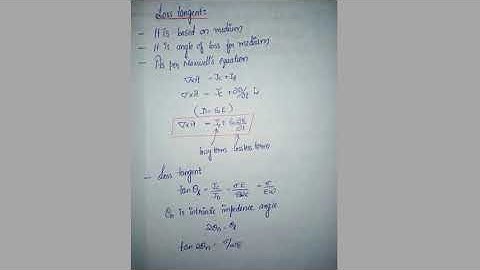 Loss tangent:
- It is based on medium
- It is angle of loss for medium
- As per Maxwell's equation
∇×H = Jc + Jd
∇×H = Jc + ∂D/∂t
(D = εE)
∇×H = Jc + ε∂E/∂t
lossy term lossless term
- Loss tangent
tan θd = Jc/Jd = σE/ = σ/εω
θn is intrinsic impedence angle
2θn = θd
tan 2θn = σ/ωε